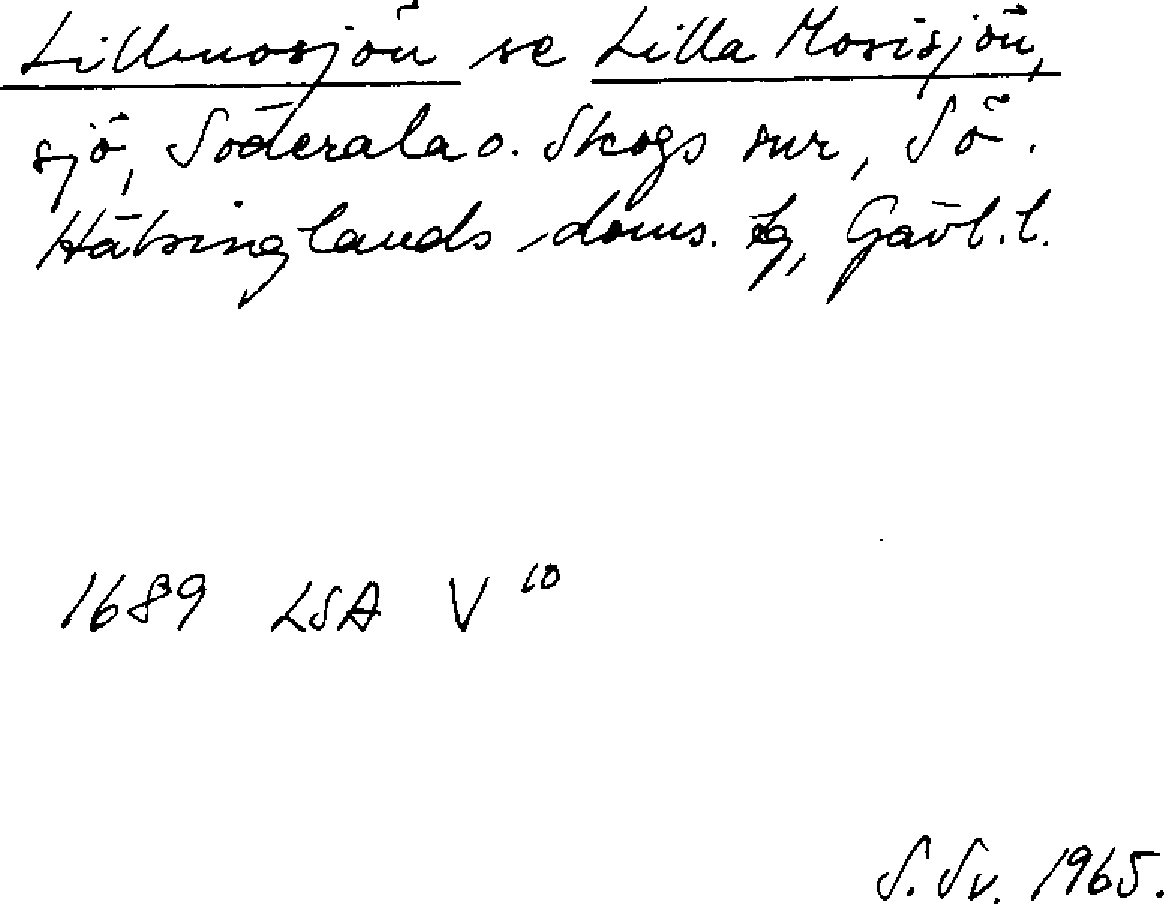 Lillmosjön se Lilla Mosisjön,
sjö, Söderala o. Skogs snr, Sö.
Hälsinglands doms. tg, Gävl.l.
1689 LSA V 10
S. Sv. 1965.